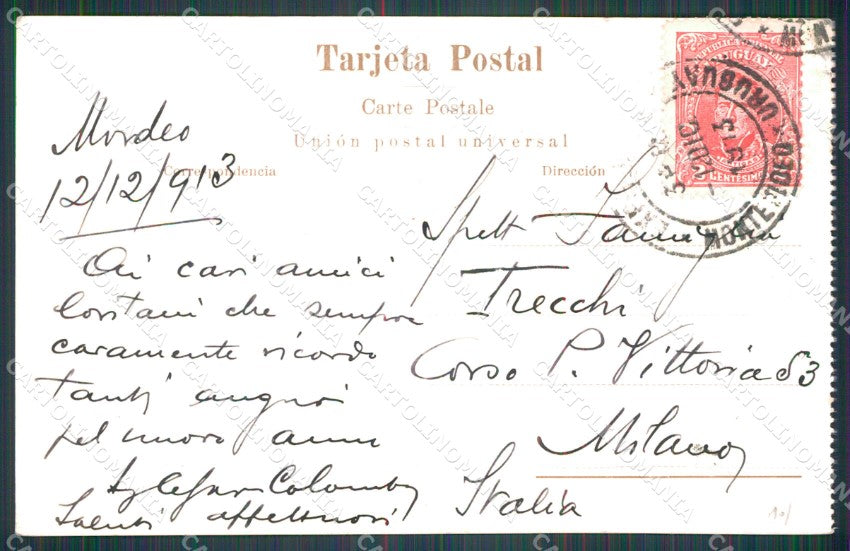 Tarjeta Postal
Carte Postale
Unión postal universal
Correspondencia
Dirección
REPUBLICA
URUGUAY
CENTESIMOS
MONTEVIDEO
URUGUAY
12 DIC 1913
Mvrdeo
12/12/913
Ai cari amici
lontani che sempre
caramente ricordo
Tanti auguri
pel nuovo anno
Colombo
Saluti affettuosi
Spett Famiglia
Trecchi
Corso P. Vittoria 53
Milano
Italia
CARTOLINOMANIA